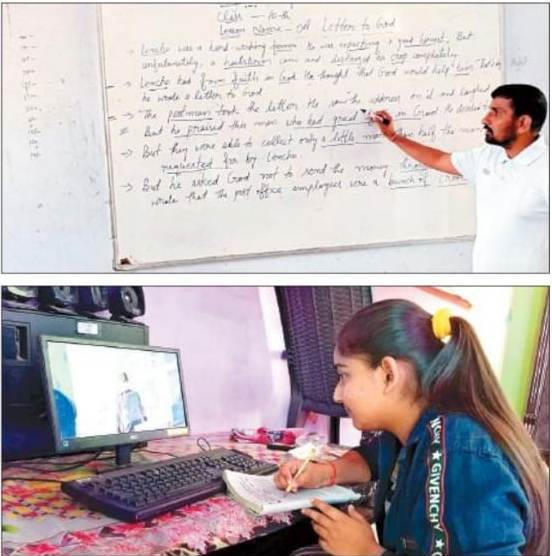 Class - 10th
Lesson Name - A Letter to God
→ Lencho was a hard-working farmer. He was expecting a good harvest. But
unfortunately, a hailstorm came and destroyed his crop completely.
→ Lencho had firm faith in God. He thought that God would help him.
he wrote a letter to God.
→ The postman took the letter. He saw the address on it and laughed
But he praised this man who had great in God. He decided to
→ But they were able to collect only a little more than half the money
requested for by Lencho.
→ But he asked God not to send the money
wrote that the post office employees were a bunch of
GIVENCHY